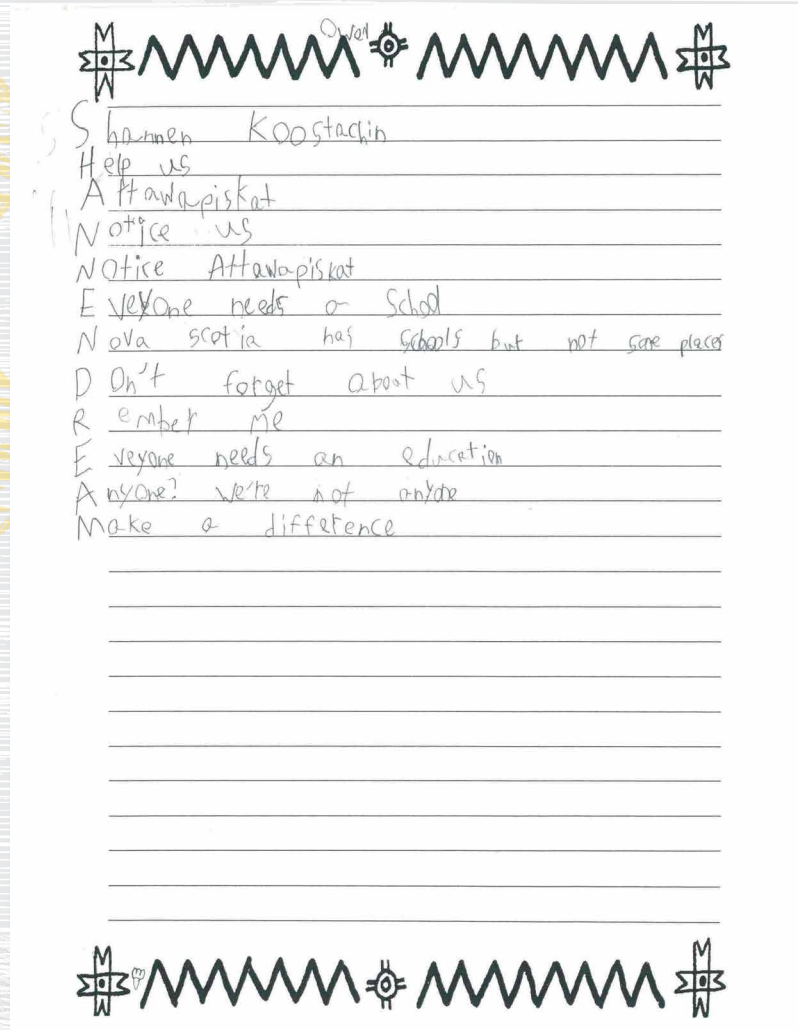 Owen
Shannen Koostachin
Help us
Attawapiskat
Notice us
Notice Attawapiskat
Eveyone needs a School
Nova scotia has schools but not some places
DOn't forget about us
Remember me
Eveyone needs an education
Anyone? we're not anyone
Make a difference